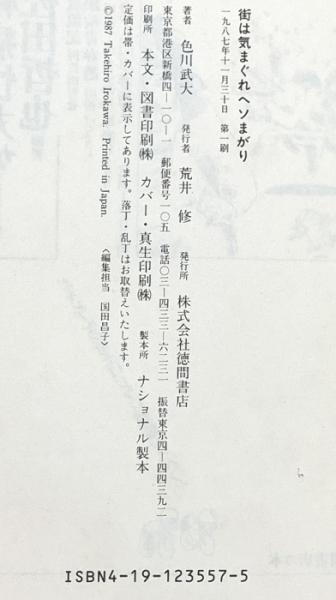 街は気まぐれヘソまがり
一九八七年十一月三十日　第一刷
著者　色川武大　発行者　荒井修　発行所　株式会社徳間書店
東京都港区新橋四―一〇―一　郵便番号一〇五　電話〇三―四三三―六二三一　振替東京四―四四三九二
印刷所　本文・図書印刷㈱　カバー・真生印刷㈱　製本所　ナショナル製本
定価は帯・カバーに表示してあります。落丁・乱丁はお取替えいたします。
©1987 Takehiro Irokawa. Printed in Japan.
〈編集担当　国田昌子〉
ISBN4-19-123557-5